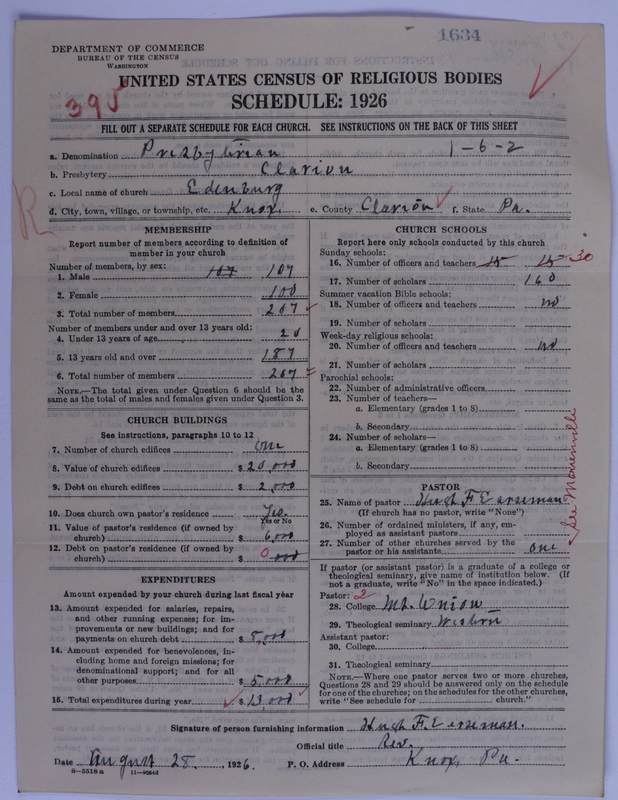 1634
DEPARTMENT OF COMMERCE
BUREAU OF THE CENSUS
WASHINGTON
UNITED STATES CENSUS OF RELIGIOUS BODIES
395
SCHEDULE: 1926
FILL OUT A SEPARATE SCHEDULE FOR EACH CHURCH. SEE INSTRUCTIONS ON THE BACK OF THIS SHEET
a. Denomination Presbyterian 1-6-2
b. Presbytery Clarion
c. Local name of church Edenburg
R
d. City, town, village, or township, etc. Knox e. County Clarion f. State Pa.
MEMBERSHIP
Report number of members according to definition of
member in your church
Number of members, by sex:
1. Male 107 107
2. Female 100
3. Total number of members 207
Number of members under and over 13 years old:
4. Under 13 years of age 20
5. 13 years old and over 187
6. Total number of members 207
NOTE.—The total given under Question 6 should be the
same as the total of males and females given under Question 3.
CHURCH BUILDINGS
See instructions, paragraphs 10 to 12
7. Number of church edifices one
8. Value of church edifices $ 20,000
9. Debt on church edifices $ 2,000
10. Does church own pastor's residence Yes.
Yes or No
11. Value of pastor's residence (if owned by
church) $ 6,000
12. Debt on pastor's residence (if owned by
church) $ 0 000
EXPENDITURES
Amount expended by your church during last fiscal year
13. Amount expended for salaries, repairs,
and other running expenses; for im-
provements or new buildings; and for
payments on church debt $ 8,000
14. Amount expended for benevolences, in-
cluding home and foreign missions; for
denominational support; and for all
other purposes $ 5,000
15. Total expenditures during year $ 13,000
CHURCH SCHOOLS
Report here only schools conducted by this church
Sunday schools:
16. Number of officers and teachers 15 15 30
17. Number of scholars 160
Summer vacation Bible schools:
18. Number of officers and teachers no
19. Number of scholars
Week-day religious schools:
20. Number of officers and teachers no
21. Number of scholars
Parochial schools:
22. Number of administrative officers
23. Number of teachers—
a. Elementary (grades 1 to 8)
b. Secondary
24. Number of scholars—
a. Elementary (grades 1 to 8)
b. Secondary
See Marienville
PASTOR
25. Name of pastor Hugh F Earseman
(If church has no pastor, write "None")
26. Number of ordained ministers, if any, em-
ployed as assistant pastors
27. Number of other churches served by the
pastor or his assistants one
If pastor (or assistant pastor) is a graduate of a college or
theological seminary, give name of institution below. (If
not a graduate, write "No" in the space indicated.)
Pastor: 2
28. College Mt. Union
29. Theological seminary Western
Assistant pastor:
30. College
31. Theological seminary
NOTE.—Where one pastor serves two or more churches,
Questions 28 and 29 should be answered only on the schedule
for one of the churches; on the schedules for the other churches,
write "See schedule for church."
Signature of person furnishing information Hugh F. Earseman.
Official title Rev.
Date August 28, 1926. P. O. Address Knox, Pa.
8-5518 a